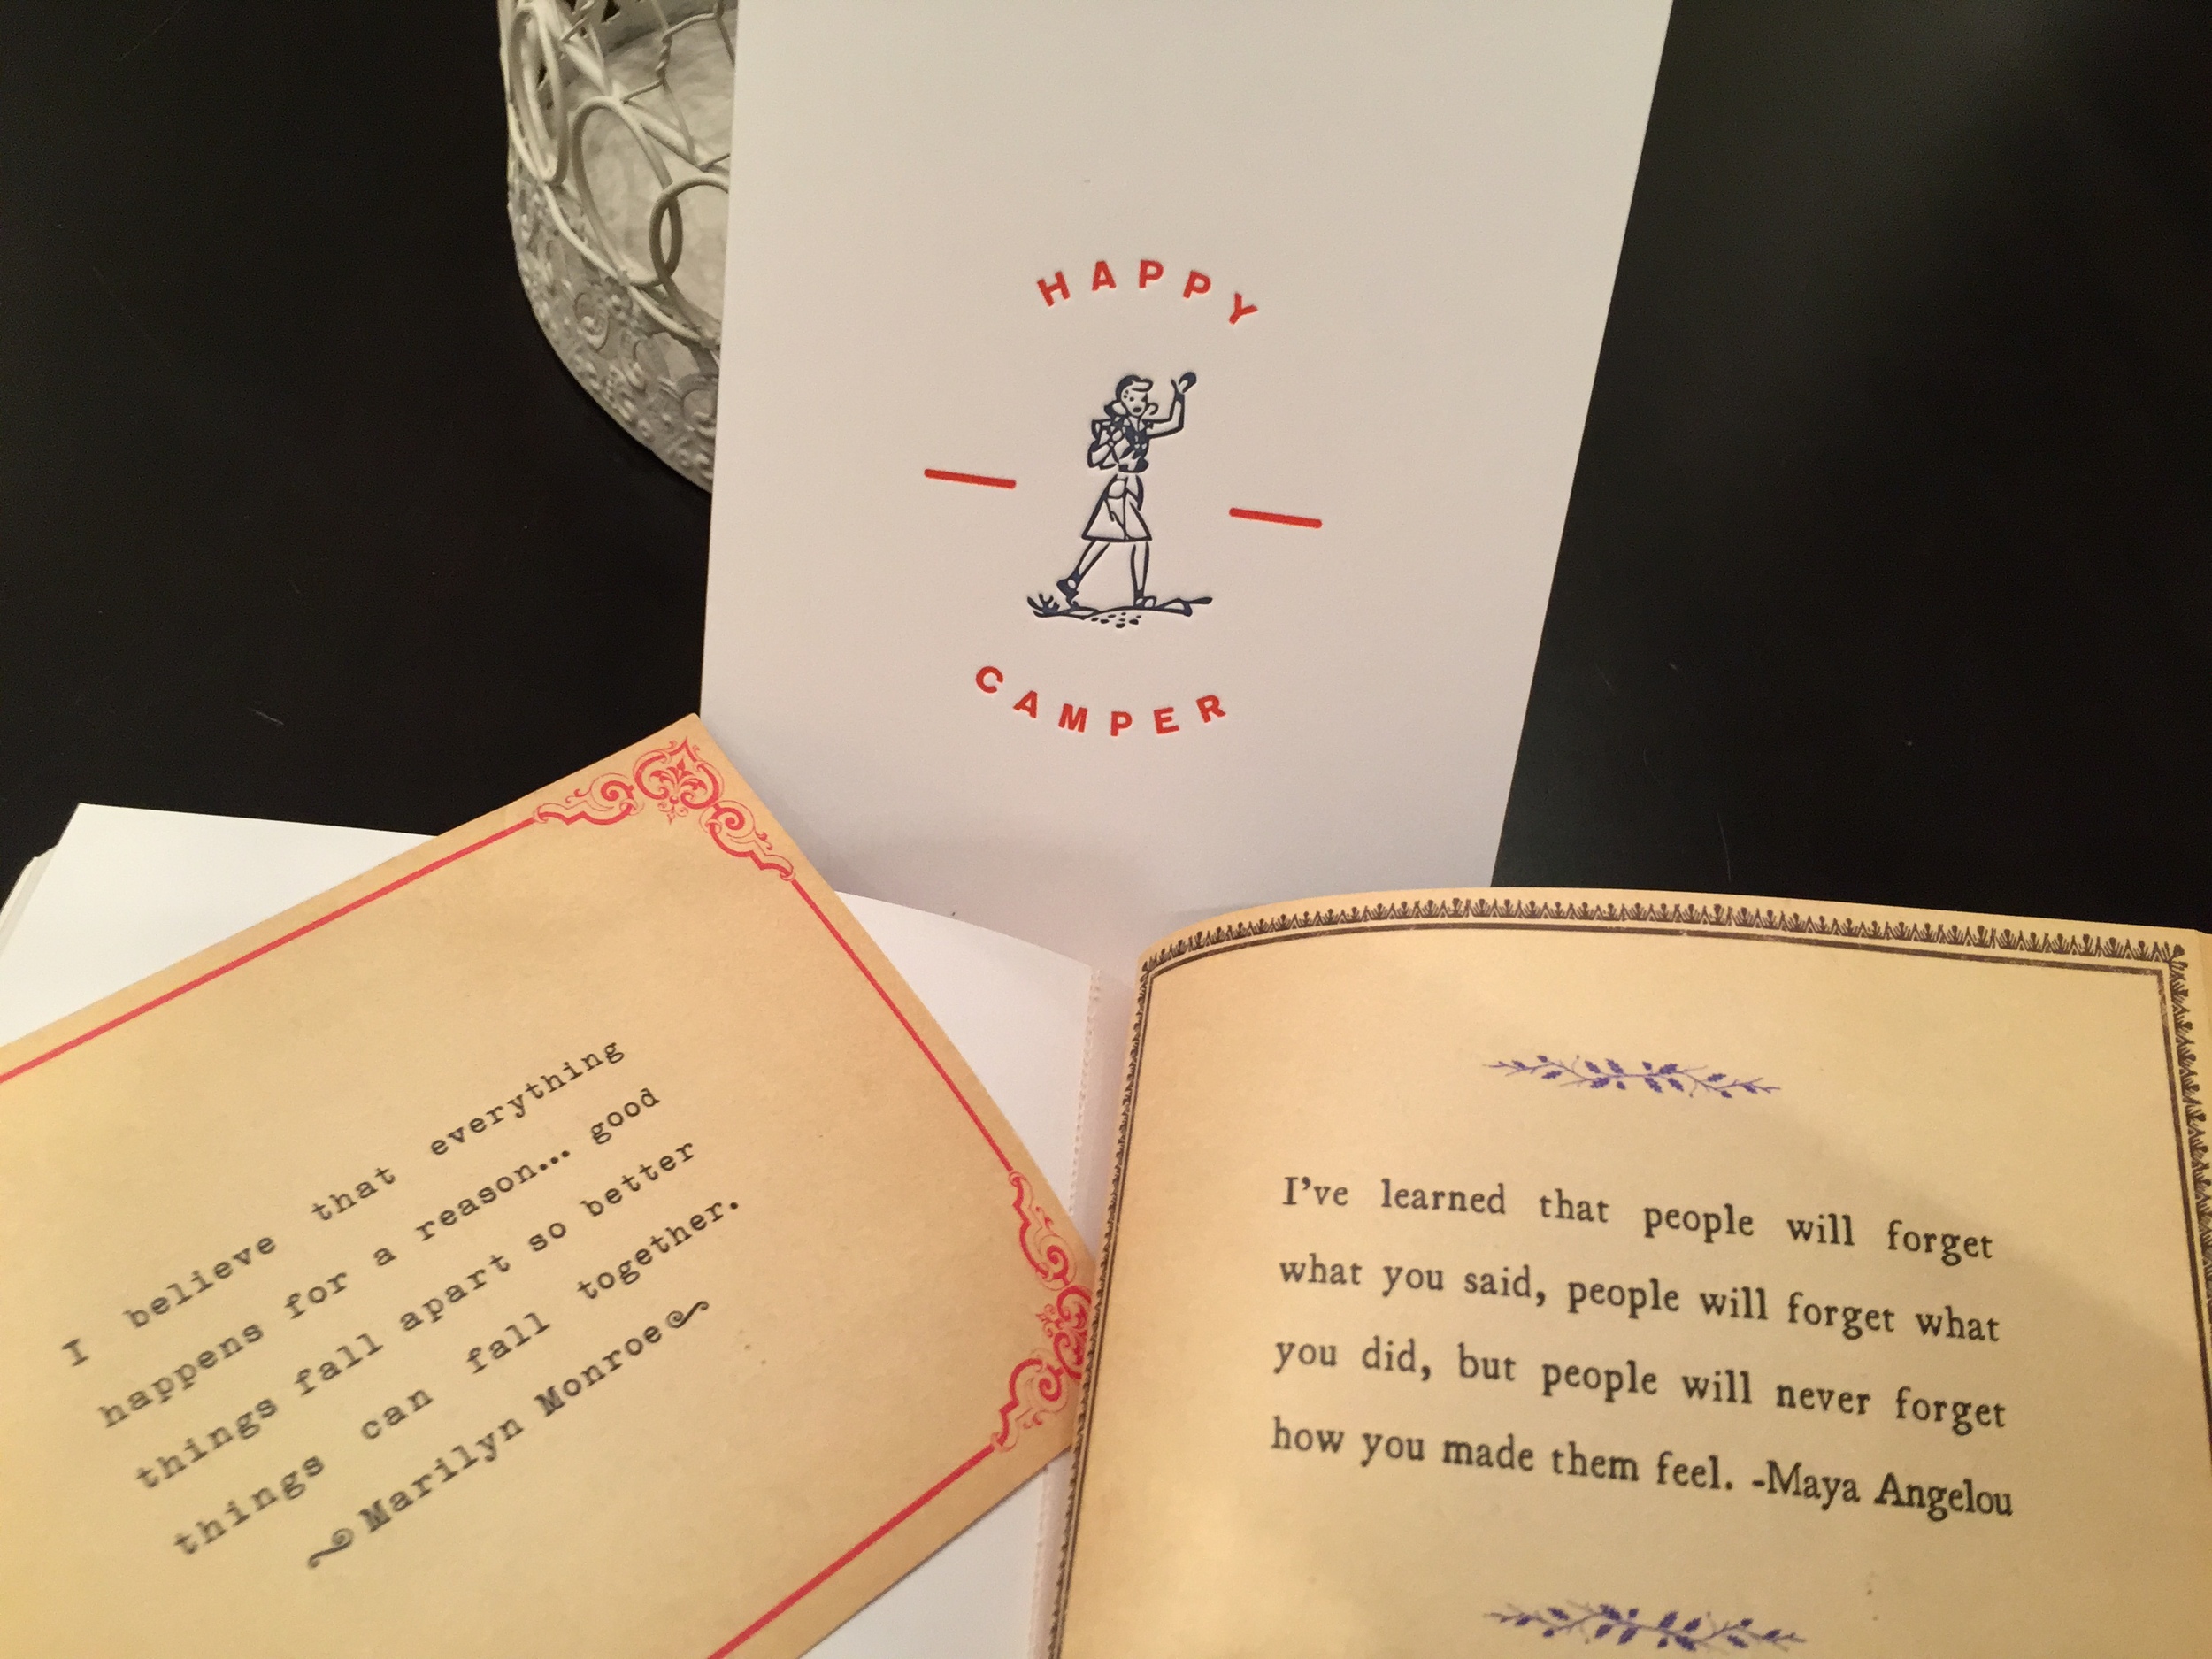 HAPPY
CAMPER
I believe that everything
happens for a reason... good
things fall apart so better
things can fall together.
Marilyn Monroe
I've learned that people will forget
what you said, people will forget what
you did, but people will never forget
how you made them feel. -Maya Angelou